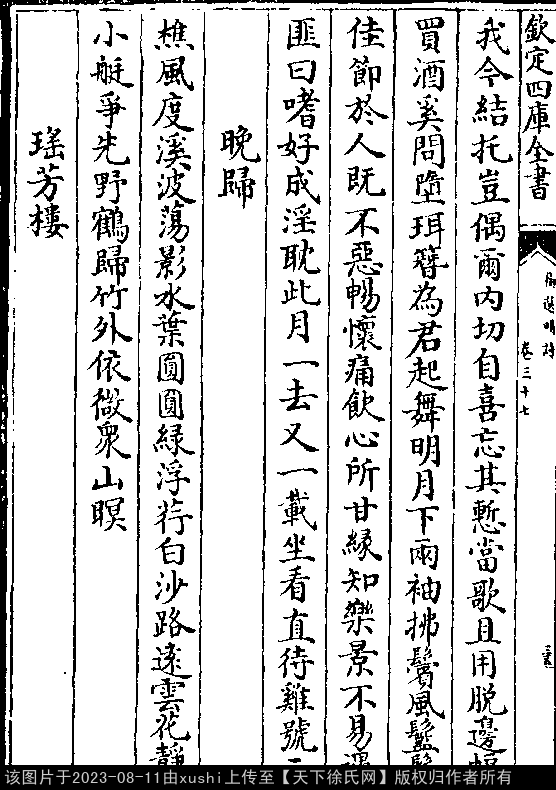 欽定四庫全書
御選明詩
卷三十七
我今結托豈偶爾內切自喜忘其慙當歌且用脫邊幅
買酒奚問墮珥簪為君起舞明月下兩袖拂鬢風鬖
佳節於人既不惡暢懷痛飲心所甘緣知樂景不易遇
匪曰嗜好成淫耽此月一去又一載坐看直待雞號
晚歸
樵風度溪波蕩影水葉圓圓綠浮荇白沙路遠雲花靜
小艇爭先野鶴歸竹外依微衆山暝
瑤芳樓
该图片于2023-08-11由xushi上传至【天下徐氏网】版权归作者所有